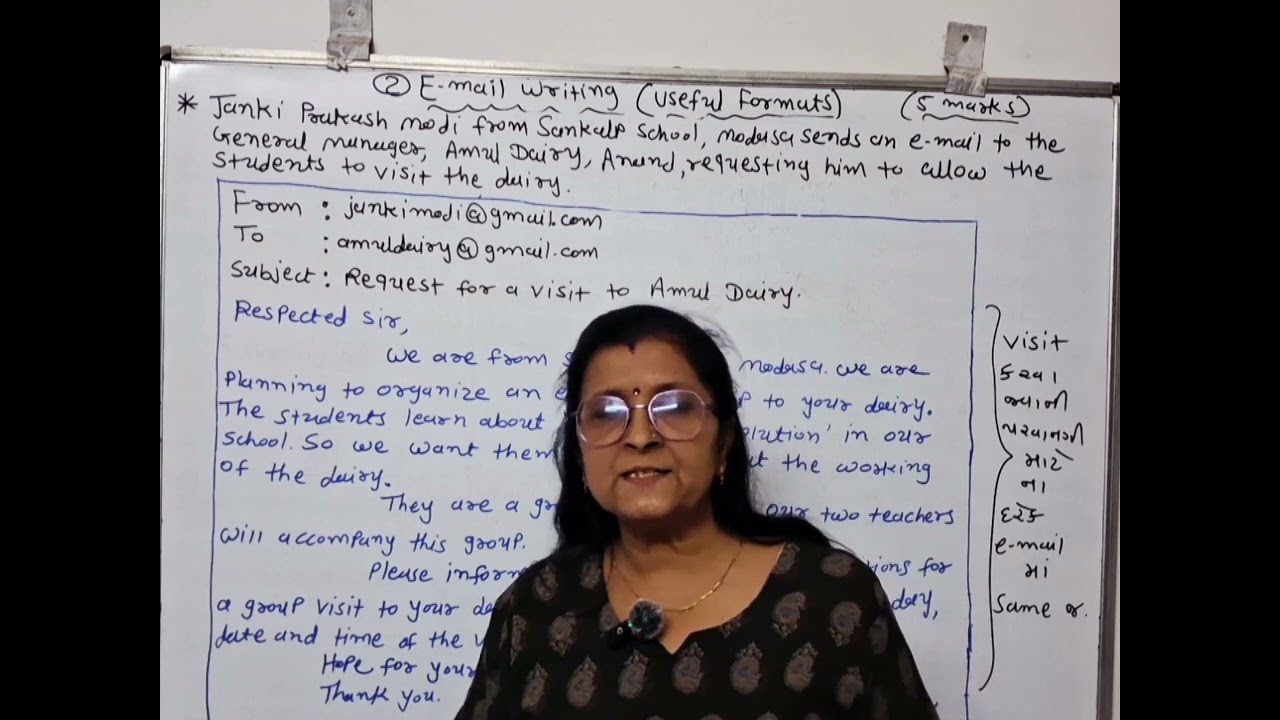 ② E-mail Writing (Useful Formats) (5 marks)
* Janki Prakash Modi from Sankalp School, Modasa sends an e-mail to the
General manager, Amul Dairy, Anand, requesting him to allow the
students to visit the dairy.
From : jankimodi@gmail.com
To : amuldairy@gmail.com
Subject : Request for a visit to Amul Dairy.
Respected Sir,
We are from modasa. we are
planning to organize an to your dairy.
The students learn about in our
school. So we want them the working
of the dairy.
They are a our two teachers
will accompany this group.
Please for
a group visit to your day,
date and time of the
Hope for your
Thank you.
visit
કરવા
જવાની
પરવાનગી
માટે
ના
દરેક
e-mail
માં
Same જ.